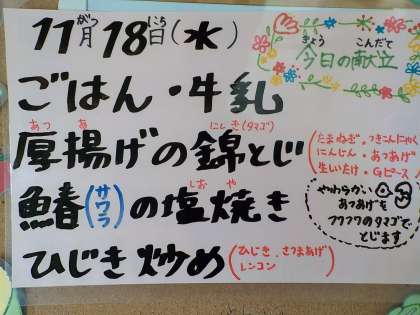 11月18日(水)
がつ にち
きょう こんだて
今日の献立
ごはん・牛乳
あつ あ にしき(タマゴ)
厚揚げの錦とじ
(たまねぎ・つきこんにゃく
にんじん・あつあげ
生いたけ・Gピース)
しお や
鰆(サワラ)の塩焼き
やわらかい
あつあげを
フワフワのタマゴで
とじます
ひじき炒め
(ひじき・さつまあげ
レンコン)